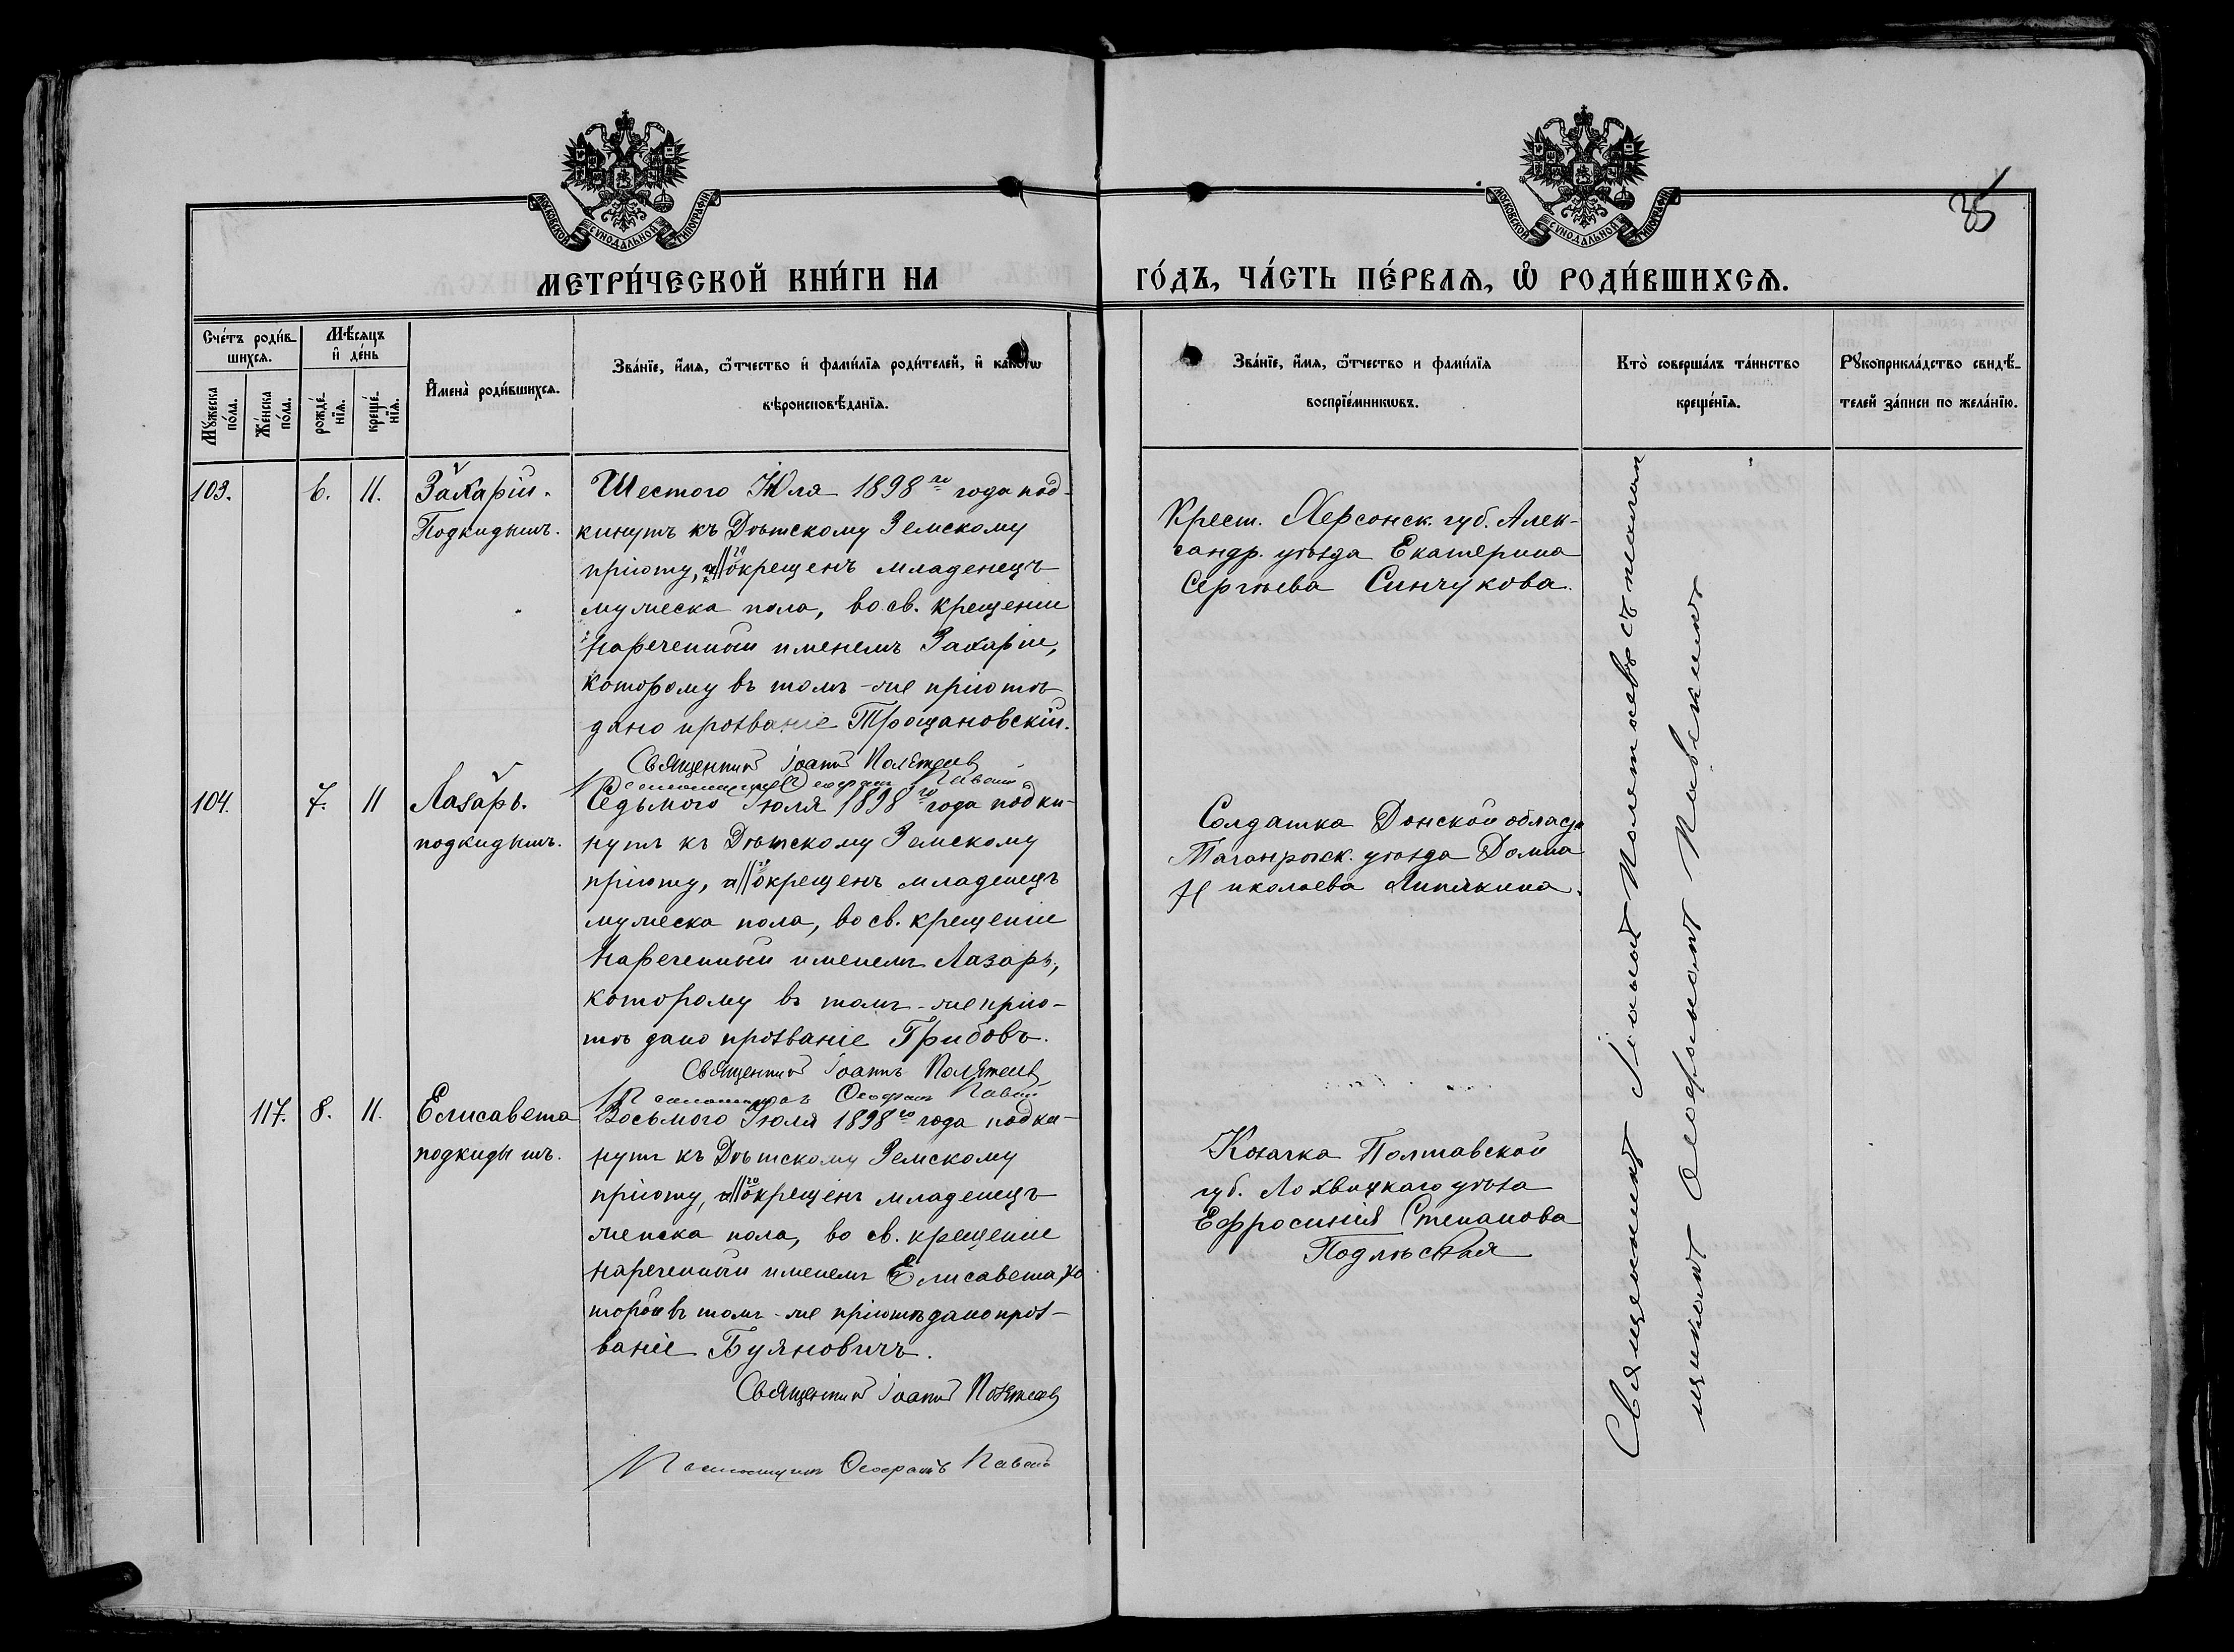 35
МОСКОВСКОЙ СУНОДАЛЬНОЙ ТИПОГРАФІИ
МОСКОВСКОЙ СУНОДАЛЬНОЙ ТИПОГРАФІИ
МЕТРИ́ЧЕСКОЙ КНИ́ГИ НА ГО́ДЪ, ЧА́СТЬ ПЕ́РВАѦ, Ѿ РОДИ́ВШИХСѦ.
Сче́тъ роди́в-
шихсѧ.
Мꙋжеска по́ла.
Же́нска по́ла.
Мѣ́сѧцъ и҆ де́нь
рожде́-
нїѧ.
креще́-
нїѧ.
И҆мена̀ роди́вшихсѧ.
Зва́нїе, и҆́мѧ, ѻ҆́тчество и҆ фами́лїѧ роди́телей, и҆ како́гѡ
вѣроисповѣ́данїѧ.
Зва́нїе, и҆́мѧ, ѻ҆́тчество и фами́лїѧ
воспрїе́мникѡвъ.
Кто̀ соверша́лъ та́инство
креще́нїѧ.
Рꙋкоприкла́дство свидѣ́-
телей за́писи по жела́нїю.
103. 6. 11. Захарій.
Подкидышъ.
Шестого Юля 1898го года под-
кинутъ къ Дѣтскому Земскому
пріюту, и окрещенъ младенецъ
мужеска пола, во св. крещеніи
нареченный именемъ Захарій,
которому въ томъ-же пріютѣ
дано прозваніе Трощановскій.
Священникъ Іоаннъ Полѣтаевъ
Псаломщикъ Ѳеофанъ
Крест. Херсонск. губ. Алек-
сандр. уѣзда Екатерина
Сергѣева Синчукова.
104. 7. 11 Лазарь.
подкидышъ.
Седьмого Іюля 1898го года подки-
нутъ къ Дѣтскому Земскому
пріюту, и окрещенъ младенецъ
мужеска пола, во св. крещеніи
нареченный именемъ Лазарь,
которому въ томъ-же прію-
тѣ дано прозваніе Грибовъ.
Священникъ Іоаннъ Полѣтаевъ
Псаломщикъ Ѳеофанъ
Солдатка Донской област
Таганрогск. уѣзда Домна
Николаева
117. 8. 11. Елисавета
подкидышъ.
Восьмого Іюля 1898го года подки-
нутъ къ Дѣтскому Земскому
пріюту, и окрещенъ младенецъ
женска пола, во св. крещеніи
нареченный именемъ Елисавета, ко
торой въ томъ-же пріютѣ дано проз-
ваніе Буяновичъ.
Священникъ Іоаннъ Полѣтаевъ
Псаломщикъ Ѳеофанъ
Козачка Полтавской
губ. Лохвицкаго уѣзда
Ефросинія Степанова
Подлѣсная
Священникъ Іоаннъ Полѣтаевъ съ псалом
щикомъ Ѳеофаномъ